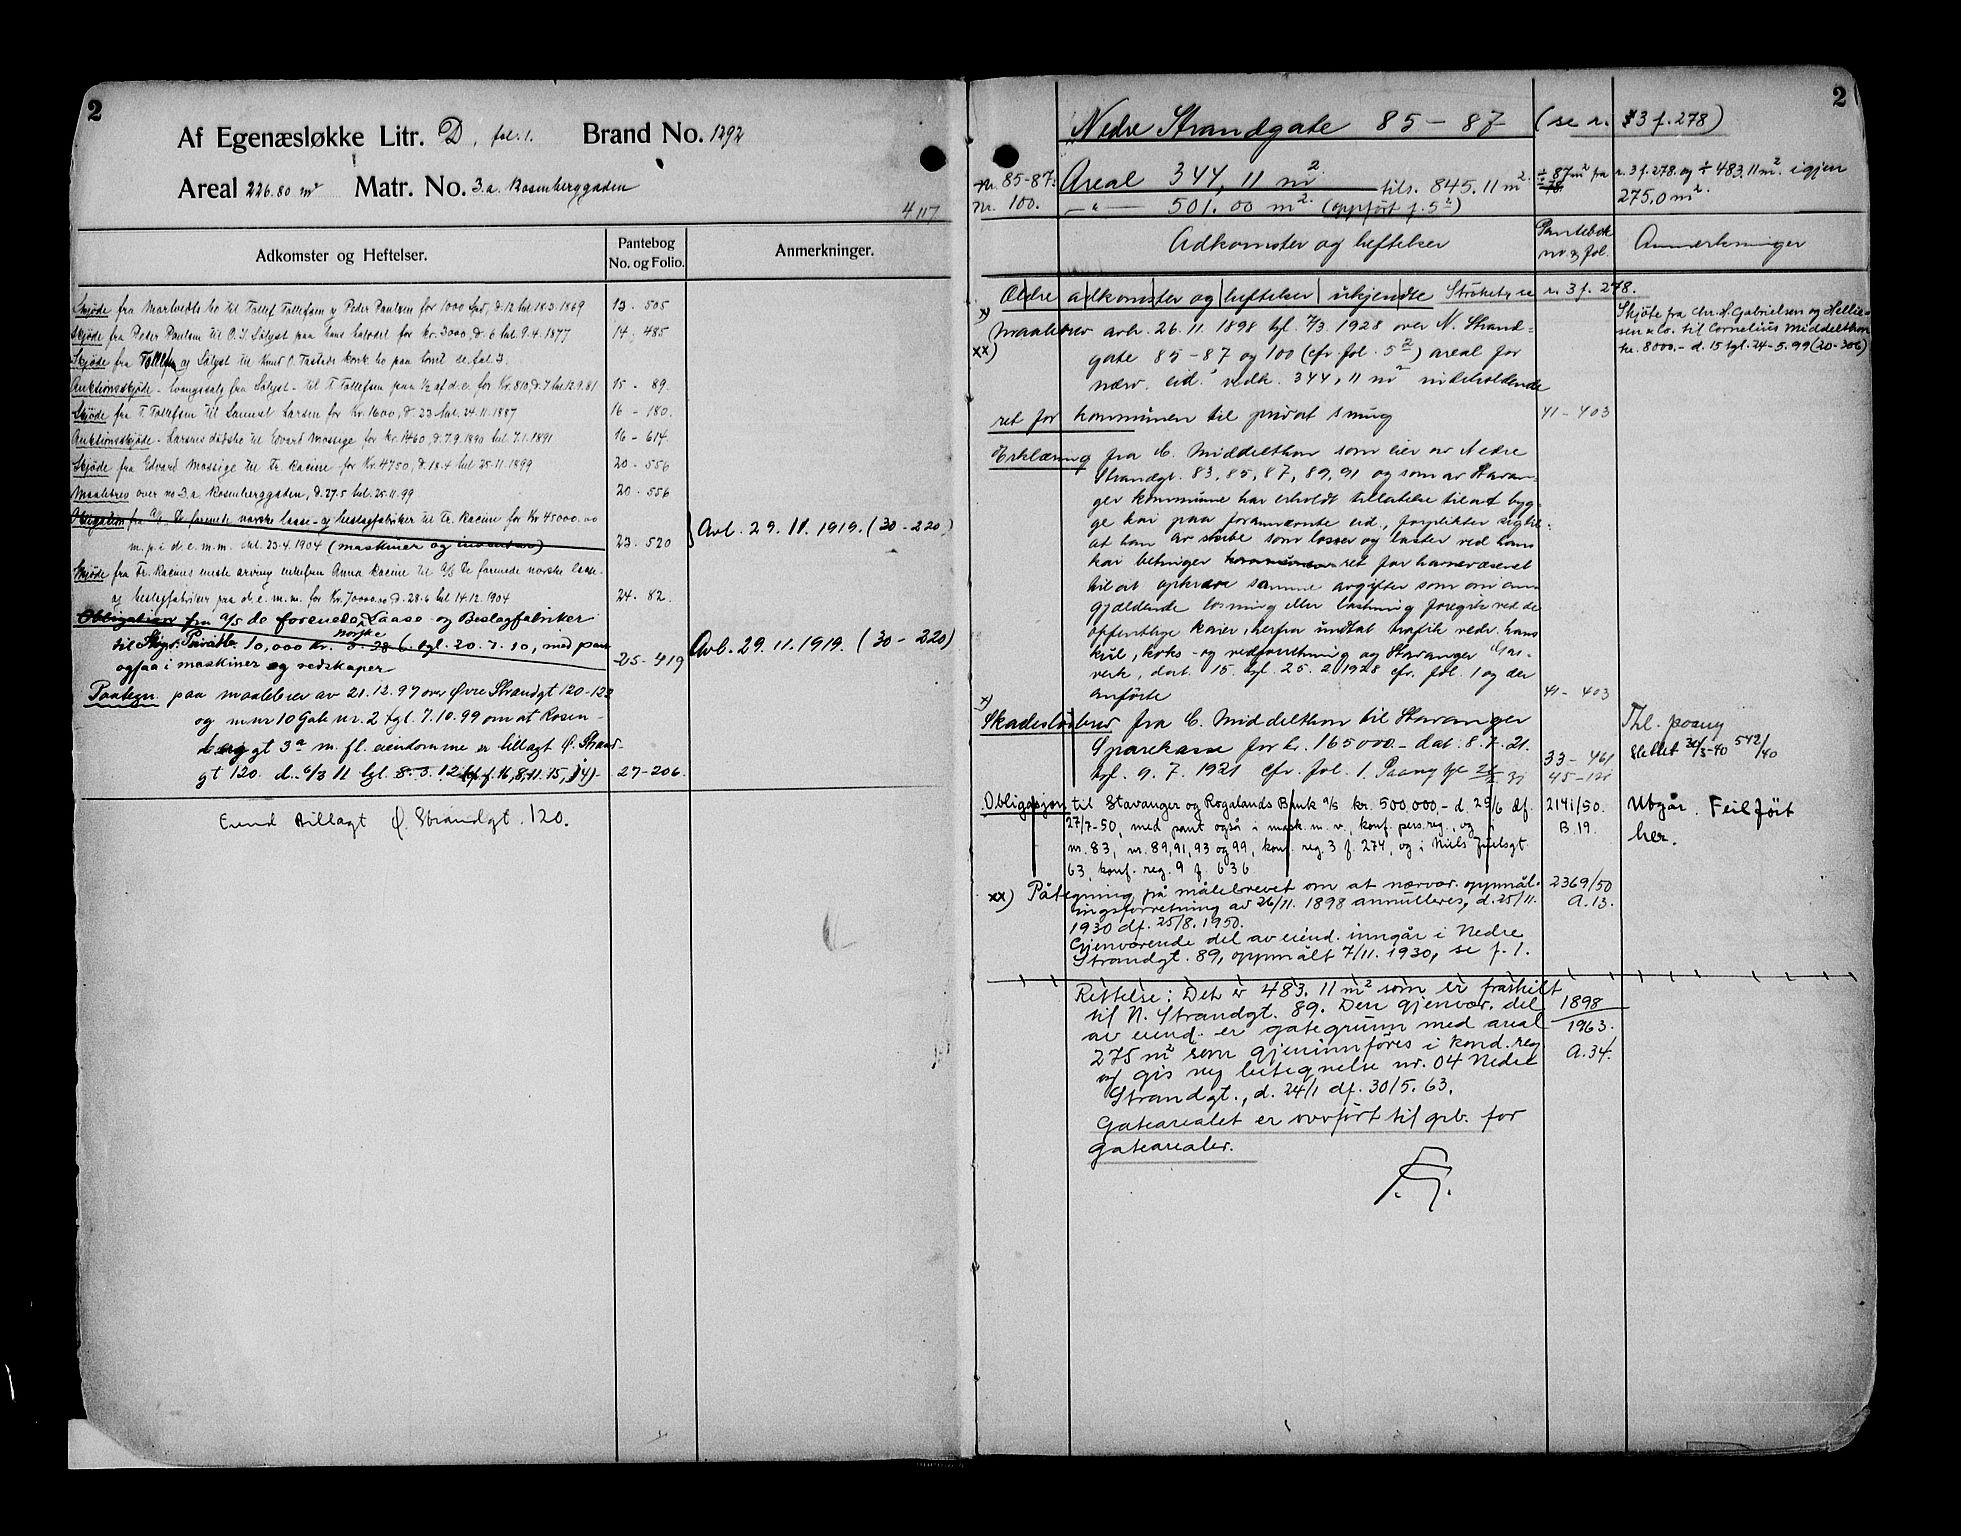 2
Af Egenæsløkke Litr. D, fol. 1. Brand No. 1292
Areal 226.80 m² Matr. No. 3.a. Rosenberggaden
4117
Adkomster og Heftelser.
Pantebog
No. og Folio.
Anmerkninger.
Skjøde fra til Tollef Tollefsen og Peder Paulsen for 1000 Spd, d. 12 tgl. 18.3.1869 13 - 505
Skjøde fra Peder Paulsen til O. J. Sølyst paa hans halvdel for kr. 3000, d. 6 tgl. 9.4.1877 14 - 485
Skjøde fra Tollefsen og Sølyst til Knud O. Tasteds enke bo paa bort de. fol 3.
Auktionsskjøde - tvangssalg fra Sølyst - til T. Tollefsen paa ½ af d. e. for Kr. 810, d. 7 tgl. 12.9.81 15 - 89.
Skjøde fra T. Tollefsen til Samuel Larsen for kr. 1600, d. 23 tgl. 24.11.1887 16 - 180.
Auktionsskjøde - Larsens dødsbo til Edvard Mossige for kr. 1460, d. 7.9.1890 tgl. 7.1.1891 16 - 614.
Skjøde fra Edvard Mossige til Fr. Racine for Kr. 4750, d. 18.4 tgl. 25.11.1899 20 - 556
Maalebrev over no 3.a. Rosenberggaden, d. 27.5 tgl. 25.11.99 20 - 556
Obligation fra A/S De forenede norske laase- og beslagfabriker til Fr. Racine for Kr 45000.00
m. p. i d. e. m. m. tgl. 23.4.1904 (maskiner og inventar) 23 - 520 Avl. 29.11.1919. (30 - 220)
Skjøde fra Fr. Racines eneste arving enkefru Anna Racine til A/S De forenede norske laase-
og beslagfabriker paa d. e. m. m. for Kr. 70000.00 d. 28.6 tgl 14.12.1904 24 - 82.
Obligation fra A/S de forenede norske Laase- og Beslagfabriker
til Stgr. Privatbk. 10,000 kr. d. 28.6. tgl. 20.7.10, med pant
ogsaa i maskiner og redskaper 25 - 419 Avl. 29.11.1919. (30 - 220)
Paategn. paa maalebrev av 21.12.97 over Øvre Strandgt 120-122
og m nr 10 Gade nr. 2 tgl. 7.10.99 om at Rosen-
berggt 3a m. fl. eiendomme er tillagt Ø. Strand-
gt 120. d. 6/3 11 tgl. 8.3.12 (kfr f. 16, 8, 11. 15, 14) - 27-206.
Eiend tillagt Ø. Strandgt. 120.
2
Nedre Strandgate 85 - 87 (se r. 3 f. 278)
Nr. 85-87: Areal 344,11 m² tils. 845.11 m² ÷ 87 m² fra r. 3 f. 278. og ÷ 483,11 m² igjen
Nr. 100. - " - 501.00 m² (oppført f. 5²) 275,0 m²
Adkomster og heftelser
Pantebok
nr. og fol.
Anmerkninger
Ældre adkomster og heftelser ukjendte Strøket, se r. 3 f. 278.
x) Skjøte fra Chr. H. Gabrielsen og Hellie-
sen & Co. til Cornelius Middelthon
kr. 8000.- d. 15 tgl. 24-5.99 (20-306)
Maalebrev avh. 26.11.1898 tgl. 7/3. 1928 over N. Strand-
xx) gate 85-87 og 100 (cfr. fol. 5²) areal for
nærv. eid. vedk. 344,11 m² indeholdende
ret for kommunen til privat smug 41 - 403
Erklæring fra C. Middelthon som eier av Nedre
Strandgt. 83, 85, 87, 89, 91 og som av Stavan-
ger kommune har erholdt tillatelse til at byg-
ge kai paa forannævnte eid., forplikter sig til
at han av skibe som losser og laster ved hans
kai betinger ret for havnevæsenet
til at opkræve samme avgifter som om an-
gjældende losning eller lastning foregik ved de
offentlige kaier, herfra undtat trafik vedr. hans
kul, koks- og vedforretning og Stavanger Gas-
verk, dat. 15. tgl. 25. 2. 1928 cfr. fol. 1 og der
anførte 41 - 403
x)
Skadesløsbrev fra C. Middelthon til Stavanger
Sparekasse for kr. 165000.- dat. 8. 7. 21.
tgl. 9. 7. 1921 cfr. fol. 1. 33 - 461
45 -
Tgl. paateg
Slettet 30/3-40 542/40
Obligasjon til Stavanger og Rogalands Bank A/S kr. 500.000,- d. 29/6 df. 2141/50.
27/7-50, med pant også i mask. m. v., konf. pers. reg., og i B. 19.
nr. 83, nr. 89, 91, 93 og 99, konf. reg. 3 f. 274, og i Niels Juelsgt
63, konf. reg. 9 f. 636
Utgår. Feilført
her.
xx) Påtegning på målebrevet om at nærvær. oppmål- 2369/50
ingsforretning av 26/11. 1898 annulleres, d. 25/11. A. 13.
1930 df. 25/8. 1950.
Gjenværende del av eiend. inngår i Nedre
Strandgt. 89, oppmålt 7/11. 1930, se f. 1.
Rettelse: Det er 483.11 m² som er fraskilt
til N. Strandgt. 89. Den gjenvær. del 1898
av eiend. er gategrunn med areal 1963.
275 m² som gjeninnføres i kond. reg A. 34.
og gis ny betegnelse nr. 04 Nedre
Strandgt., d. 24/1 df. 30/5. 63.
Gatearealet er ovført til grb. for
gatearealer.